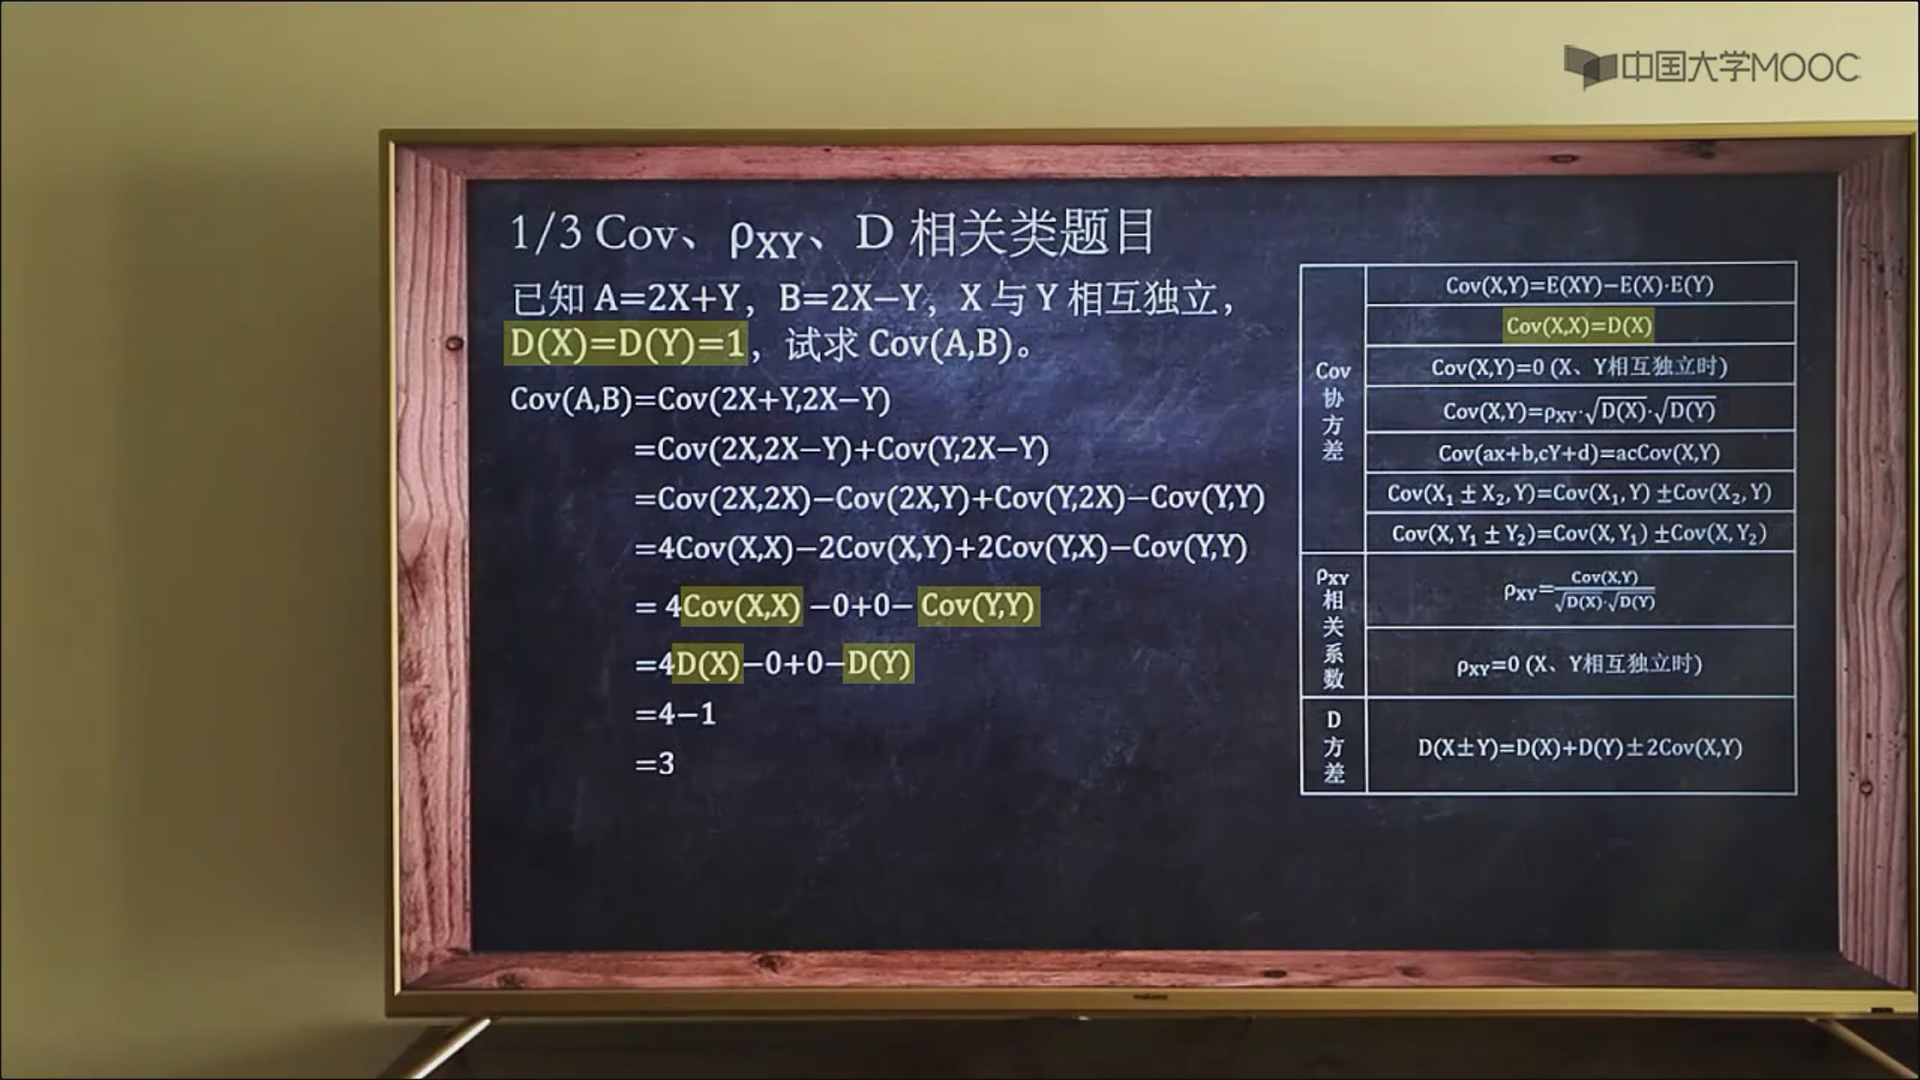 中国大学MOOC
1/3 Cov、ρXY、D 相关类题目
已知 A=2X+Y，B=2X−Y，X 与 Y 相互独立，
D(X)=D(Y)=1，试求 Cov(A,B)。
Cov(A,B)=Cov(2X+Y,2X−Y)
=Cov(2X,2X−Y)+Cov(Y,2X−Y)
=Cov(2X,2X)−Cov(2X,Y)+Cov(Y,2X)−Cov(Y,Y)
=4Cov(X,X)−2Cov(X,Y)+2Cov(Y,X)−Cov(Y,Y)
= 4Cov(X,X) −0+0− Cov(Y,Y)
=4D(X)−0+0−D(Y)
=4−1
=3
Cov协方差
Cov(X,Y)=E(XY)−E(X)·E(Y)
Cov(X,X)=D(X)
Cov(X,Y)=0 (X、Y相互独立时)
Cov(X,Y)=ρXY·√D(X)·√D(Y)
Cov(ax+b,cY+d)=acCov(X,Y)
Cov(X₁ ± X₂, Y)=Cov(X₁, Y) ±Cov(X₂, Y)
Cov(X, Y₁ ± Y₂)=Cov(X, Y₁) ±Cov(X, Y₂)
ρXY相关系数
ρXY=Cov(X,Y)/√D(X)·√D(Y)
ρXY=0 (X、Y相互独立时)
D方差
D(X±Y)=D(X)+D(Y)±2Cov(X,Y)